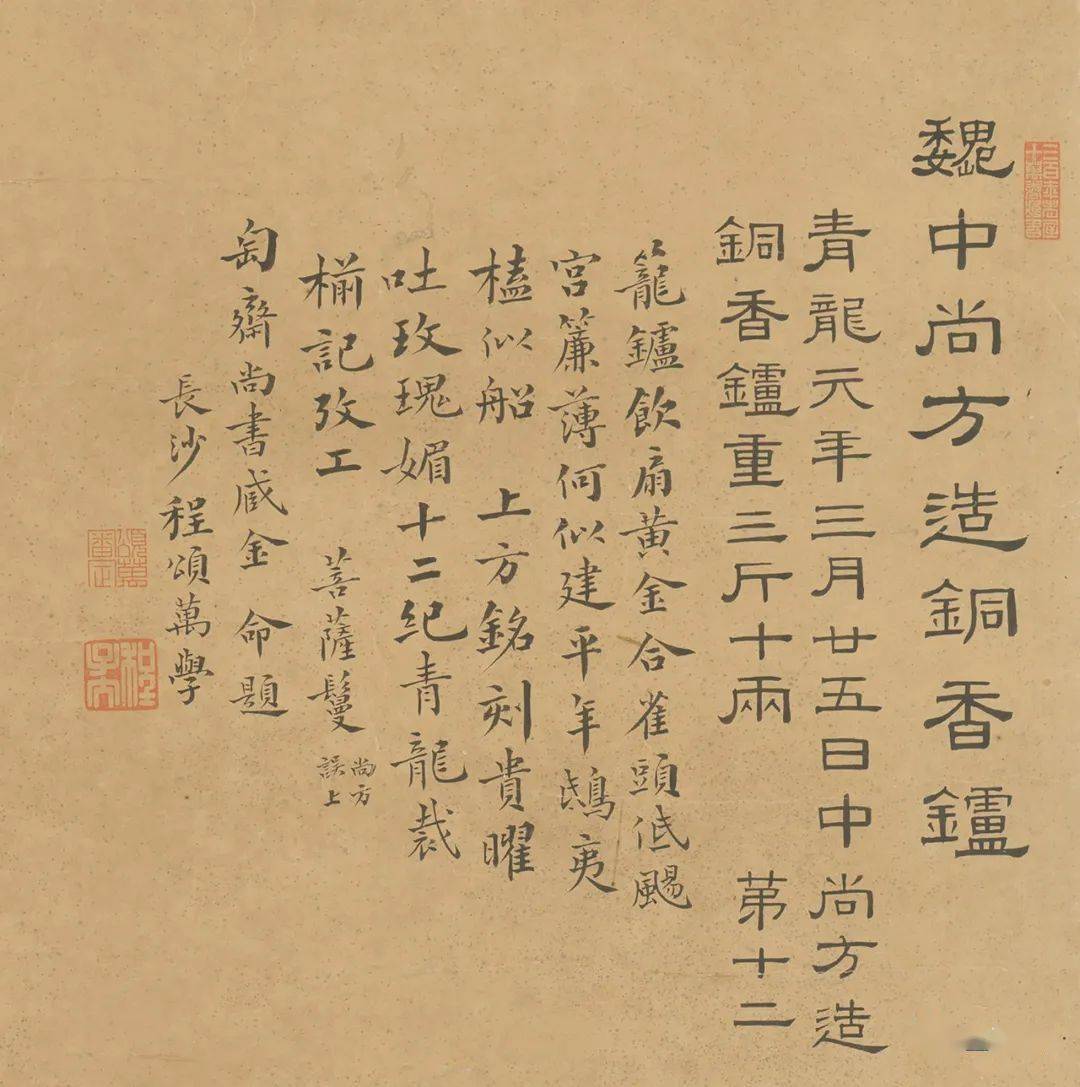 魏中尚方造銅香鑪
青龍元年三月廿五日中尚方造
銅香鑪重三斤十兩 第十二
籠鑪飲扇黃金合雀頭低颺
宮簾薄何似建平年鴟夷
榼似船 上方銘刻貴曜
吐玫瑰媚十二紀青龍裁
椾記攷工 菩薩鬘
尚方
誤上
匋齋尚書臧金 命題
長沙程頌萬學
頌萬審定